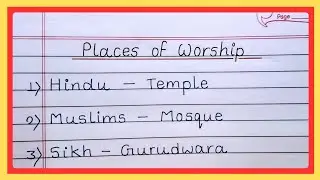 Page
Places of Worship
1) Hindu – Temple
2) Muslims – Mosque
3) Sikh – Gurudwara